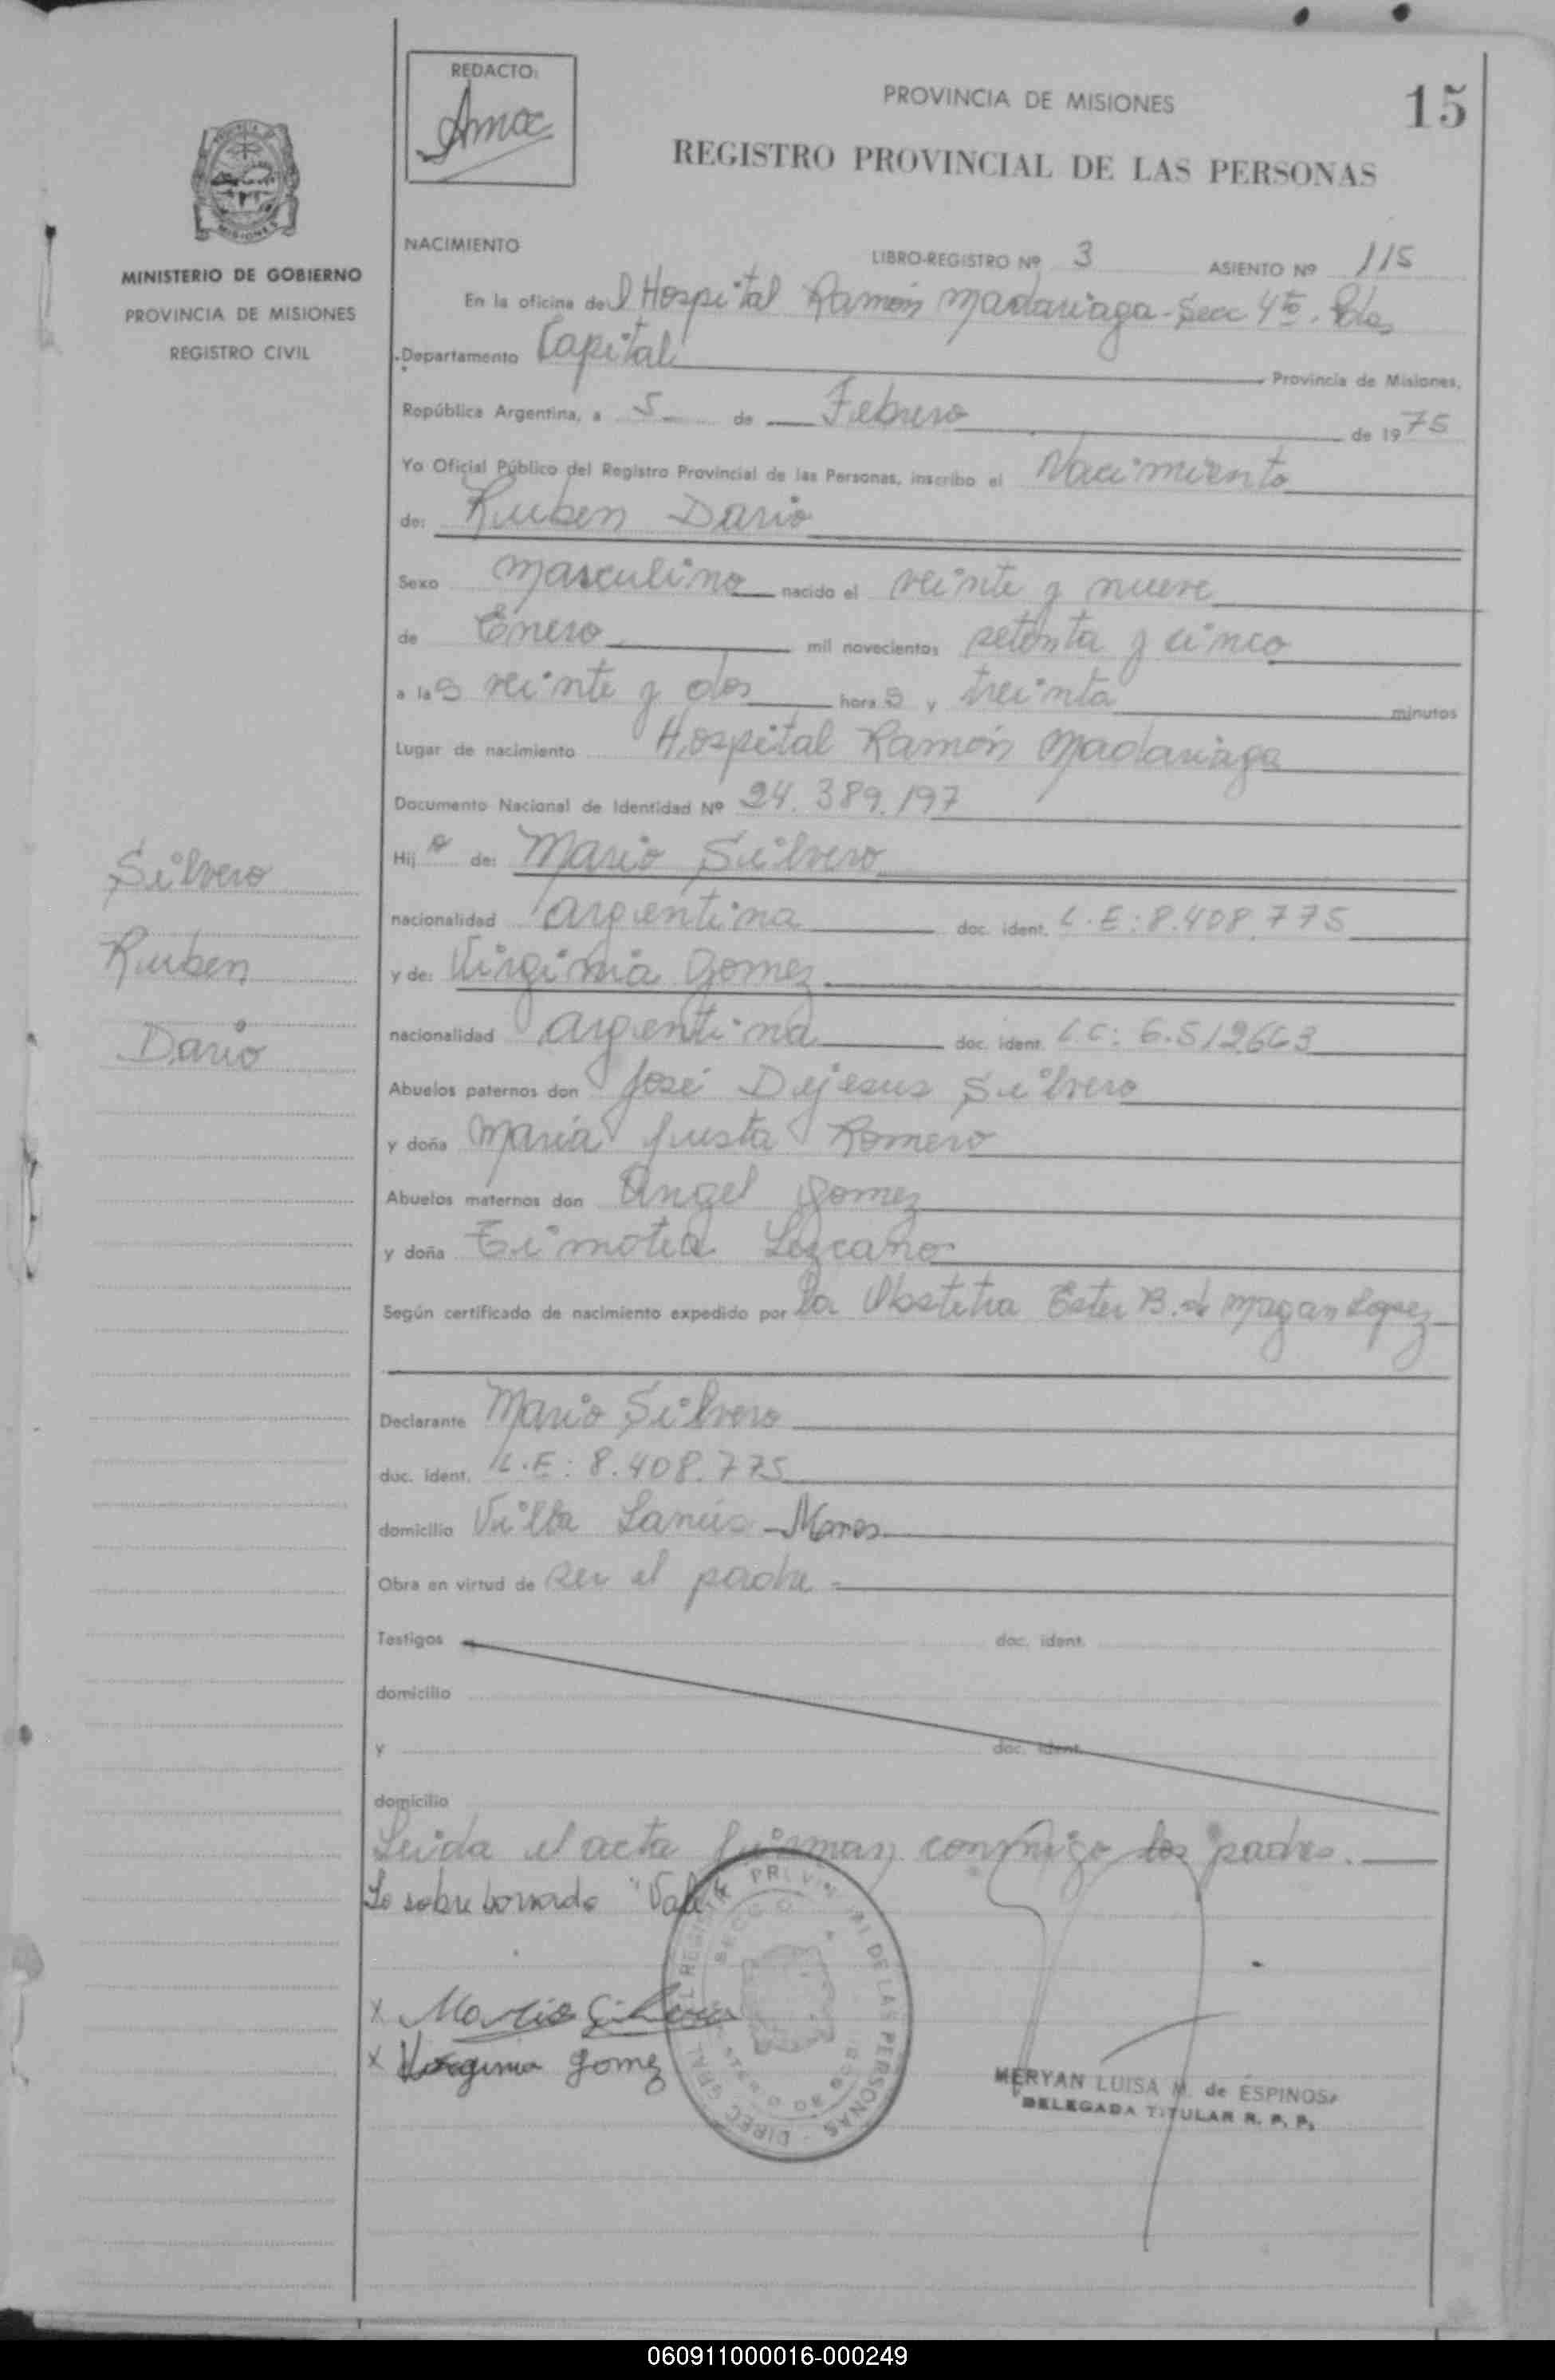 REDACTO:
Amac
PROVINCIA DE MISIONES
15
REGISTRO PROVINCIAL DE LAS PERSONAS
MINISTERIO DE GOBIERNO
PROVINCIA DE MISIONES
REGISTRO CIVIL
NACIMIENTO
LIBRO-REGISTRO Nº 3 ASIENTO Nº 115
En la oficina del Hospital Ramón Madariaga - Secc 4ta. Pdas
Departamento Capital Provincia de Misiones,
República Argentina, a 5 de Febrero de 1975
Yo Oficial Público del Registro Provincial de las Personas, inscribo el Nacimiento
de: Ruben Dario
Sexo masculino nacido el veinte y nueve
de Enero mil novecientos setenta y cinco
a las veinte y dos horas y treinta minutos
Lugar de nacimiento Hospital Ramón Madariaga
Documento Nacional de Identidad Nº 24.389.197
Hijo de: Mario Silvero
nacionalidad argentina doc. ident. L.E: 8.408.775
y de: Virginia Gomez
nacionalidad argentina doc. ident. L.C: 6.512.663
Abuelos paternos don José Dejesus Silvero
y doña Maria Justa Romero
Abuelos maternos don Angel Gomez
y doña Timotea Lezcano
Según certificado de nacimiento expedido por la Obstetra Ester B. de Magan Lopez
Declarante Mario Silvero
doc. ident. L.E: 8.408.775
domicilio Villa Lanús - Mnes
Obra en virtud de ser el padre
Testigos doc. ident.
domicilio
y doc. ident.
domicilio
Leida el acta firman conmigo los padres.
Lo sobre borrado "Vale"
Silvero
Ruben
Dario
x Mario Silvero
x Virginia Gomez
DIREC. GRAL. REGISTRO PROVINCIAL DE LAS PERSONAS
MERYAN LUISA M. de ESPINOSA
DELEGADA TITULAR R. P. P.
060911000016-000249